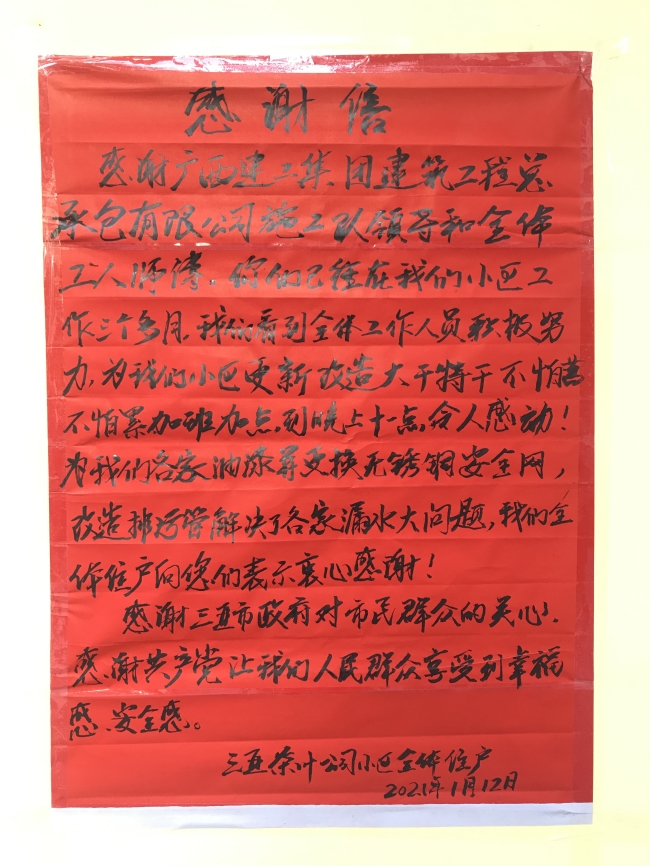 感谢信
感谢广西建工集团建筑工程总
承包有限公司施工队领导和全体
工人师傅。你们已经在我们小区工
作三个多月,我们看到全体工作人员积极努
力,为我们小区更新改造大干特干不怕苦
不怕累加班加点,到晚上十一点,令人感动!
为我们各家油漆并更换无锈钢安全网,
改造排污管解决了各家漏水大问题,我们全
体住户向您们表示衷心感谢!
感谢三亚市政府对市民群众的关心,
感谢共产党让我们人民群众享受到幸福
感、安全感。
三亚茶叶公司小区全体住户
2021年1月12日